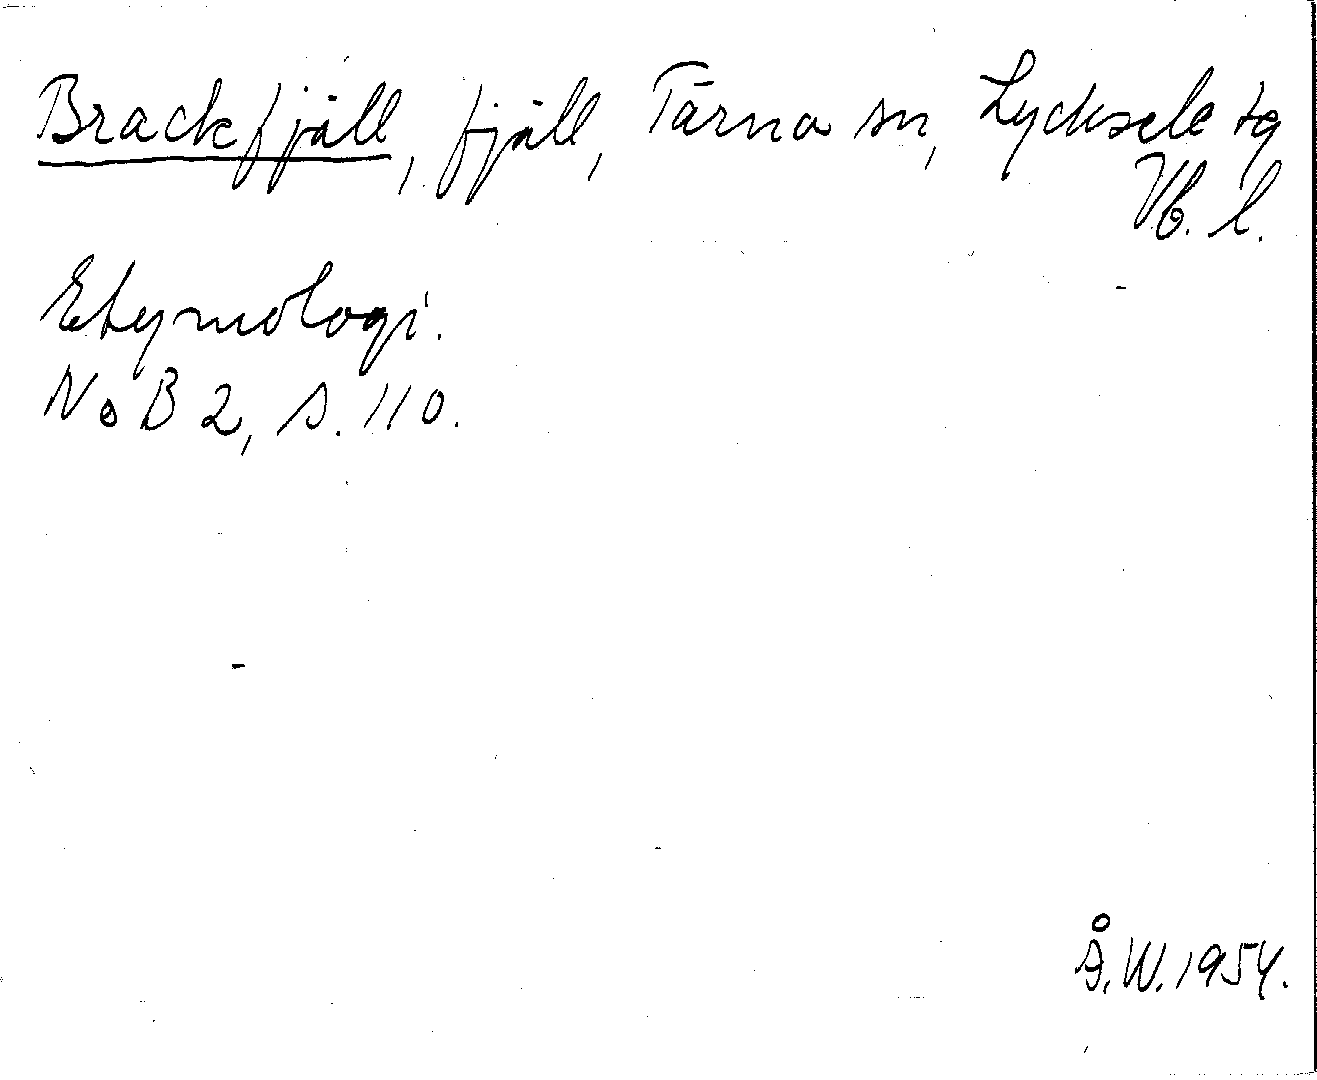 Brackfjäll, fjäll, Tärna sn, Lycksele tg
Vb. l.
Etymologi.
NoB 2, s. 110.
Å. W. 1954.